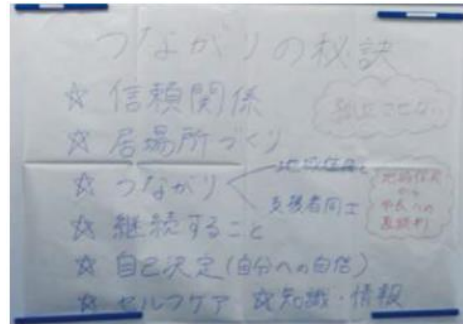 つながりの秘訣
☆ 信頼関係
孤立させない
☆ 居場所づくり
☆ つながり
地域住民と
支援者同士
地域住民
から
☆ 継続すること
☆ 自己決定(自分への自信)
☆ セルフケア ☆知識・情報